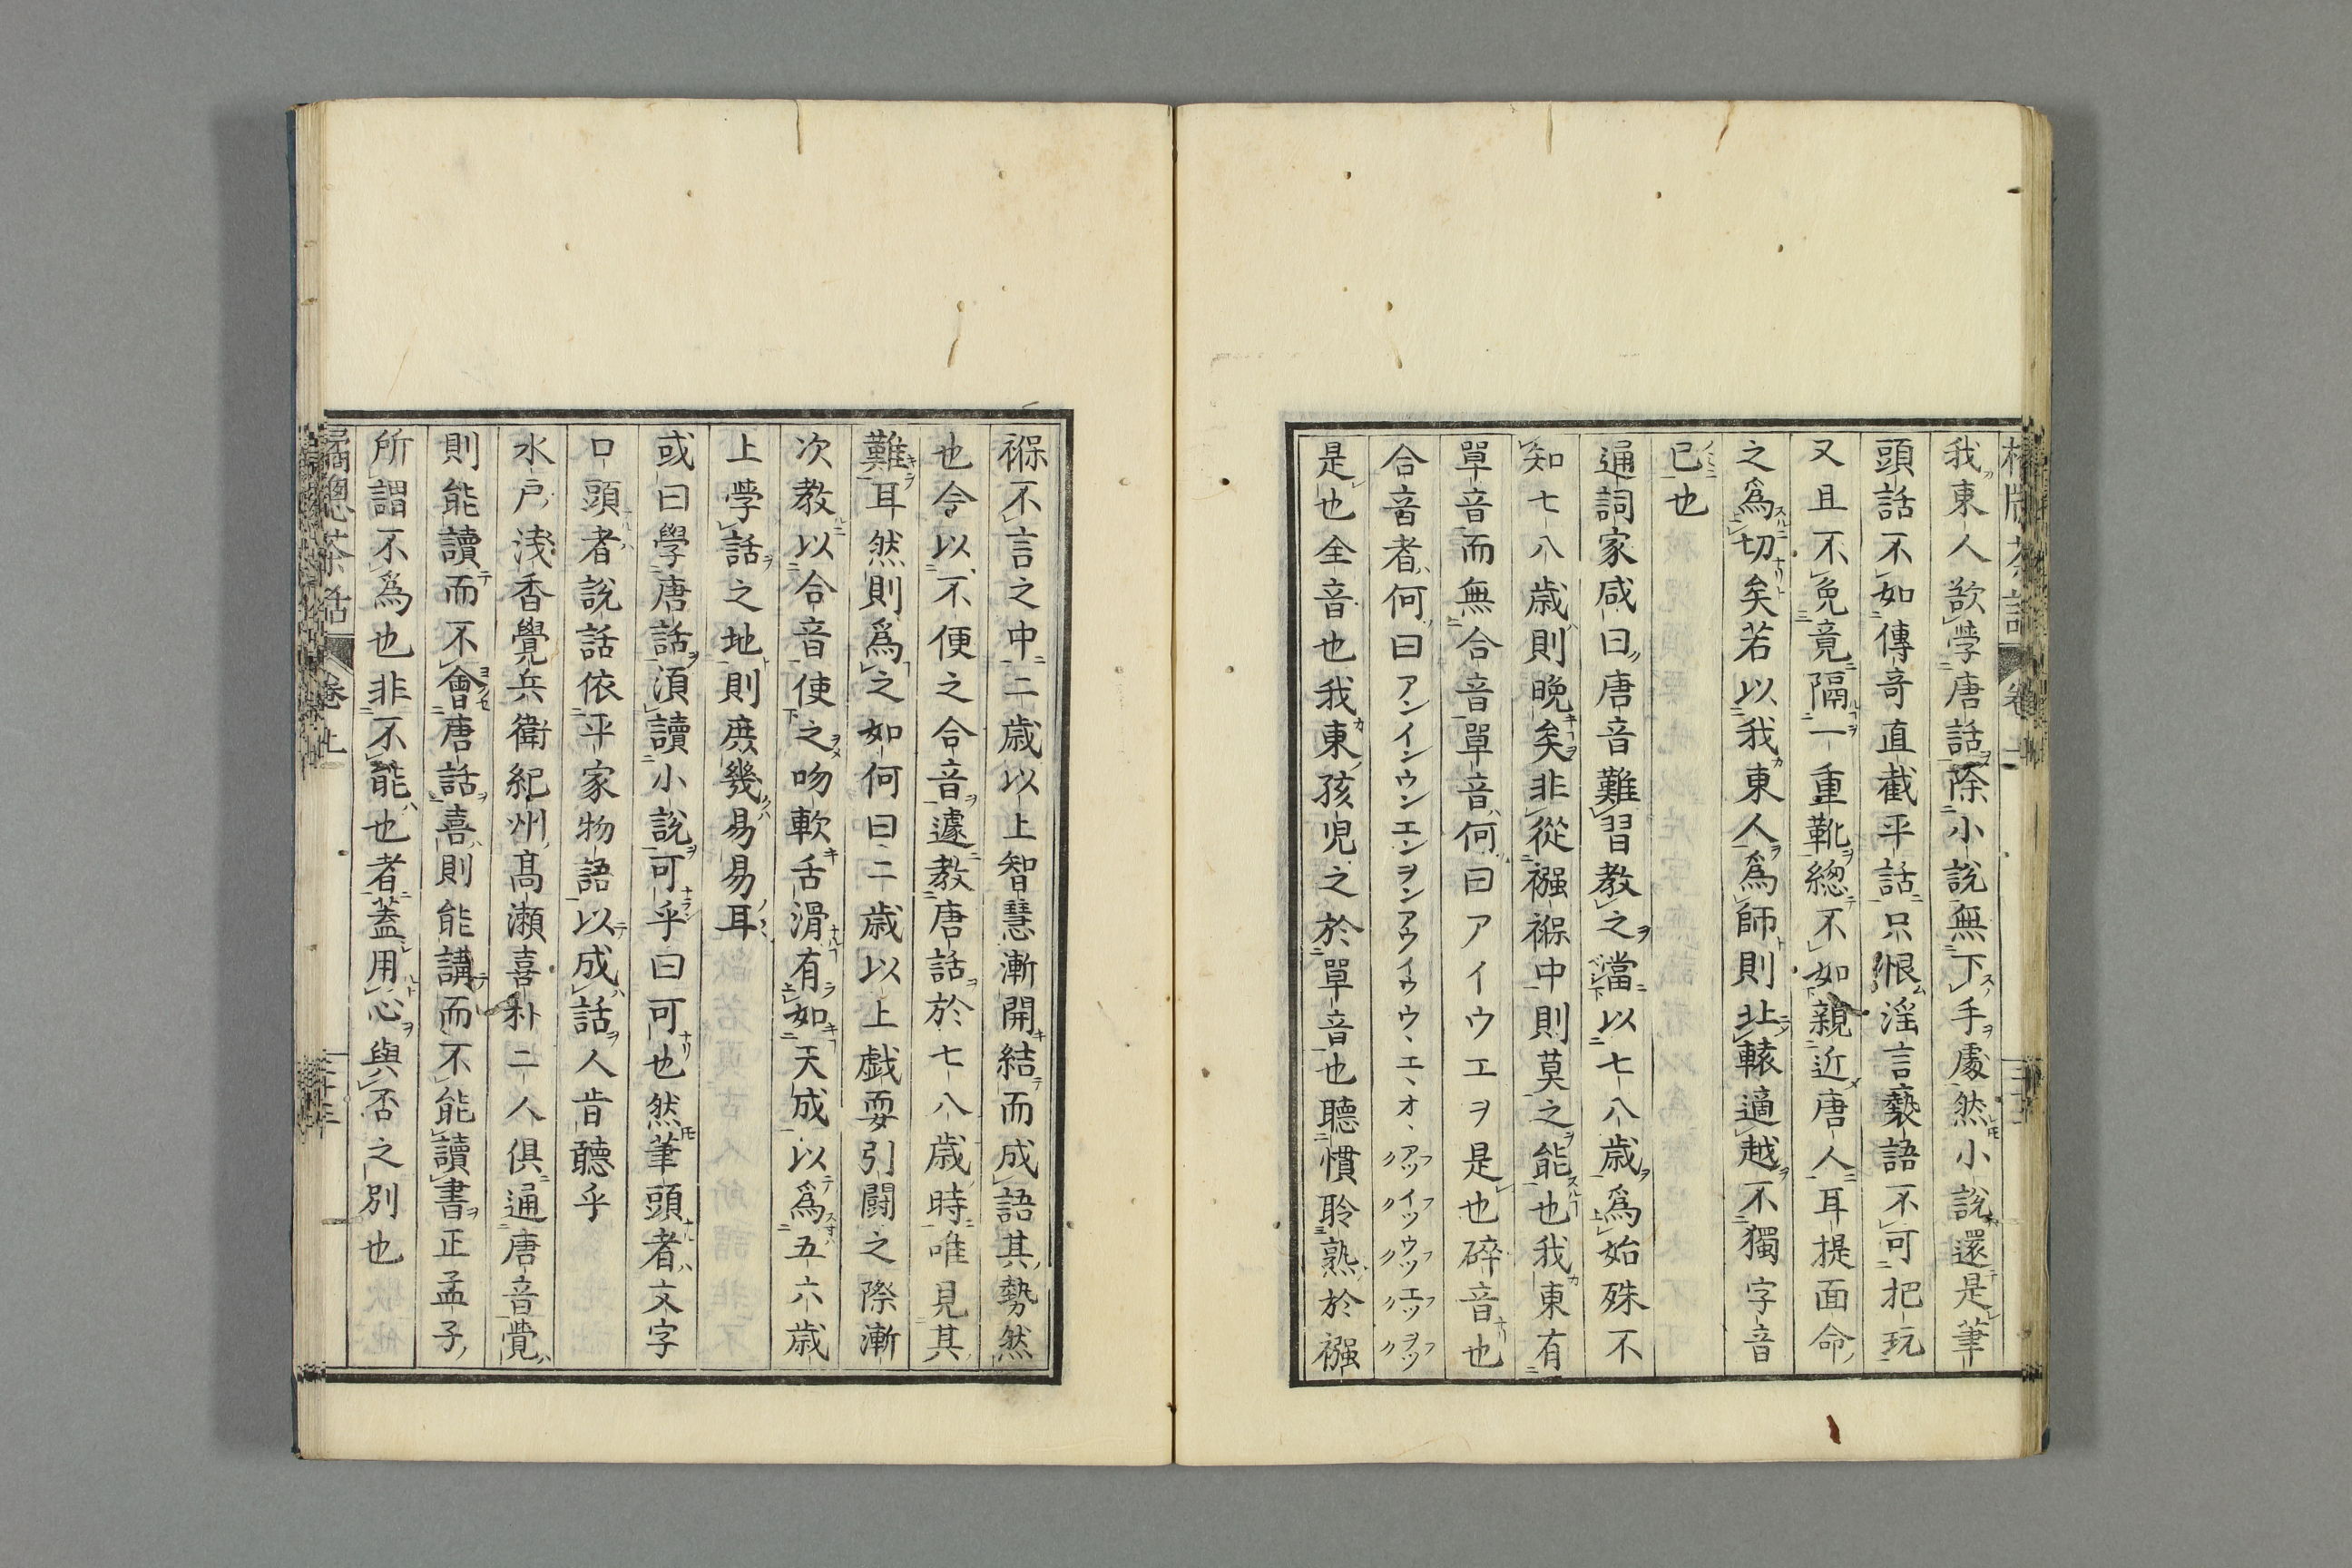 我東人欲學唐話除小說無下手處然小說還是筆
頭話不如傳奇直截平話只恨淫言褻語不可把玩
又且不免竟隔一重靴總不如親近唐人耳提面命
之爲切矣若以我東人爲師則北轅適越不獨字音
已也
通詞家咸曰唐音難習教之當以七八歲爲始殊不
知七八歲則晚矣非從襁褓中則莫之能也我東有
單音而無合音單音何曰アイウエヲ是也碎音也
合音者何曰アンインウンエンヲンアウイウウ、エ、オ、アツイツウツエツヲツ
是也全音也我東孩児之於單音也聽慣聆熟於襁
褓不言之中二歲以上智慧漸開結而成語其勢然
也令以不便之合音遽教唐話於七八歲時唯見其
難耳然則爲之如何曰二歲以上戯耍引鬪之際漸
次教以合音使之吻軟舌滑有如天成以爲五六歲
上學話之地則庶幾易易耳
或曰學唐話須讀小說可乎曰可也然筆頭者文字
口頭者說話依平家物語以成話人肯聽乎
水戶淺香覺兵衛紀州高瀬喜朴二人俱通唐音覺
則能讀而不會唐話喜則能講而不能讀書正孟子
所謂不爲也非不能也者蓋用心與否之別也
卷上